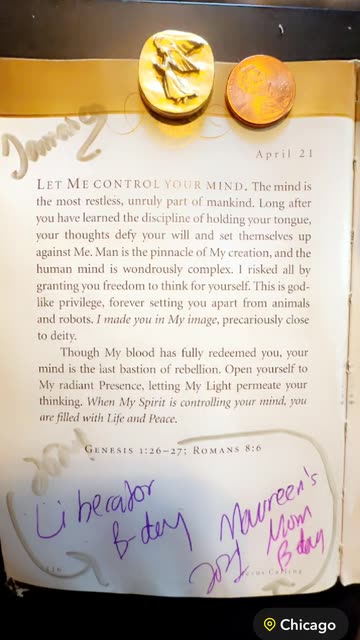 April 21
LET ME CONTROL YOUR MIND. The mind is
the most restless, unruly part of mankind. Long after
you have learned the discipline of holding your tongue,
your thoughts defy your will and set themselves up
against Me. Man is the pinnacle of My creation, and the
human mind is wondrously complex. I risked all by
granting you freedom to think for yourself. This is god-
like privilege, forever setting you apart from animals
and robots. I made you in My image, precariously close
to deity.
Though My blood has fully redeemed you, your
mind is the last bastion of rebellion. Open yourself to
My radiant Presence, letting My Light permeate your
thinking. When My Spirit is controlling your mind, you
are filled with Life and Peace.
GENESIS 1:26–27; ROMANS 8:6
Liberator
B-day
Maureen's
Mom
B day
Calling
Chicago